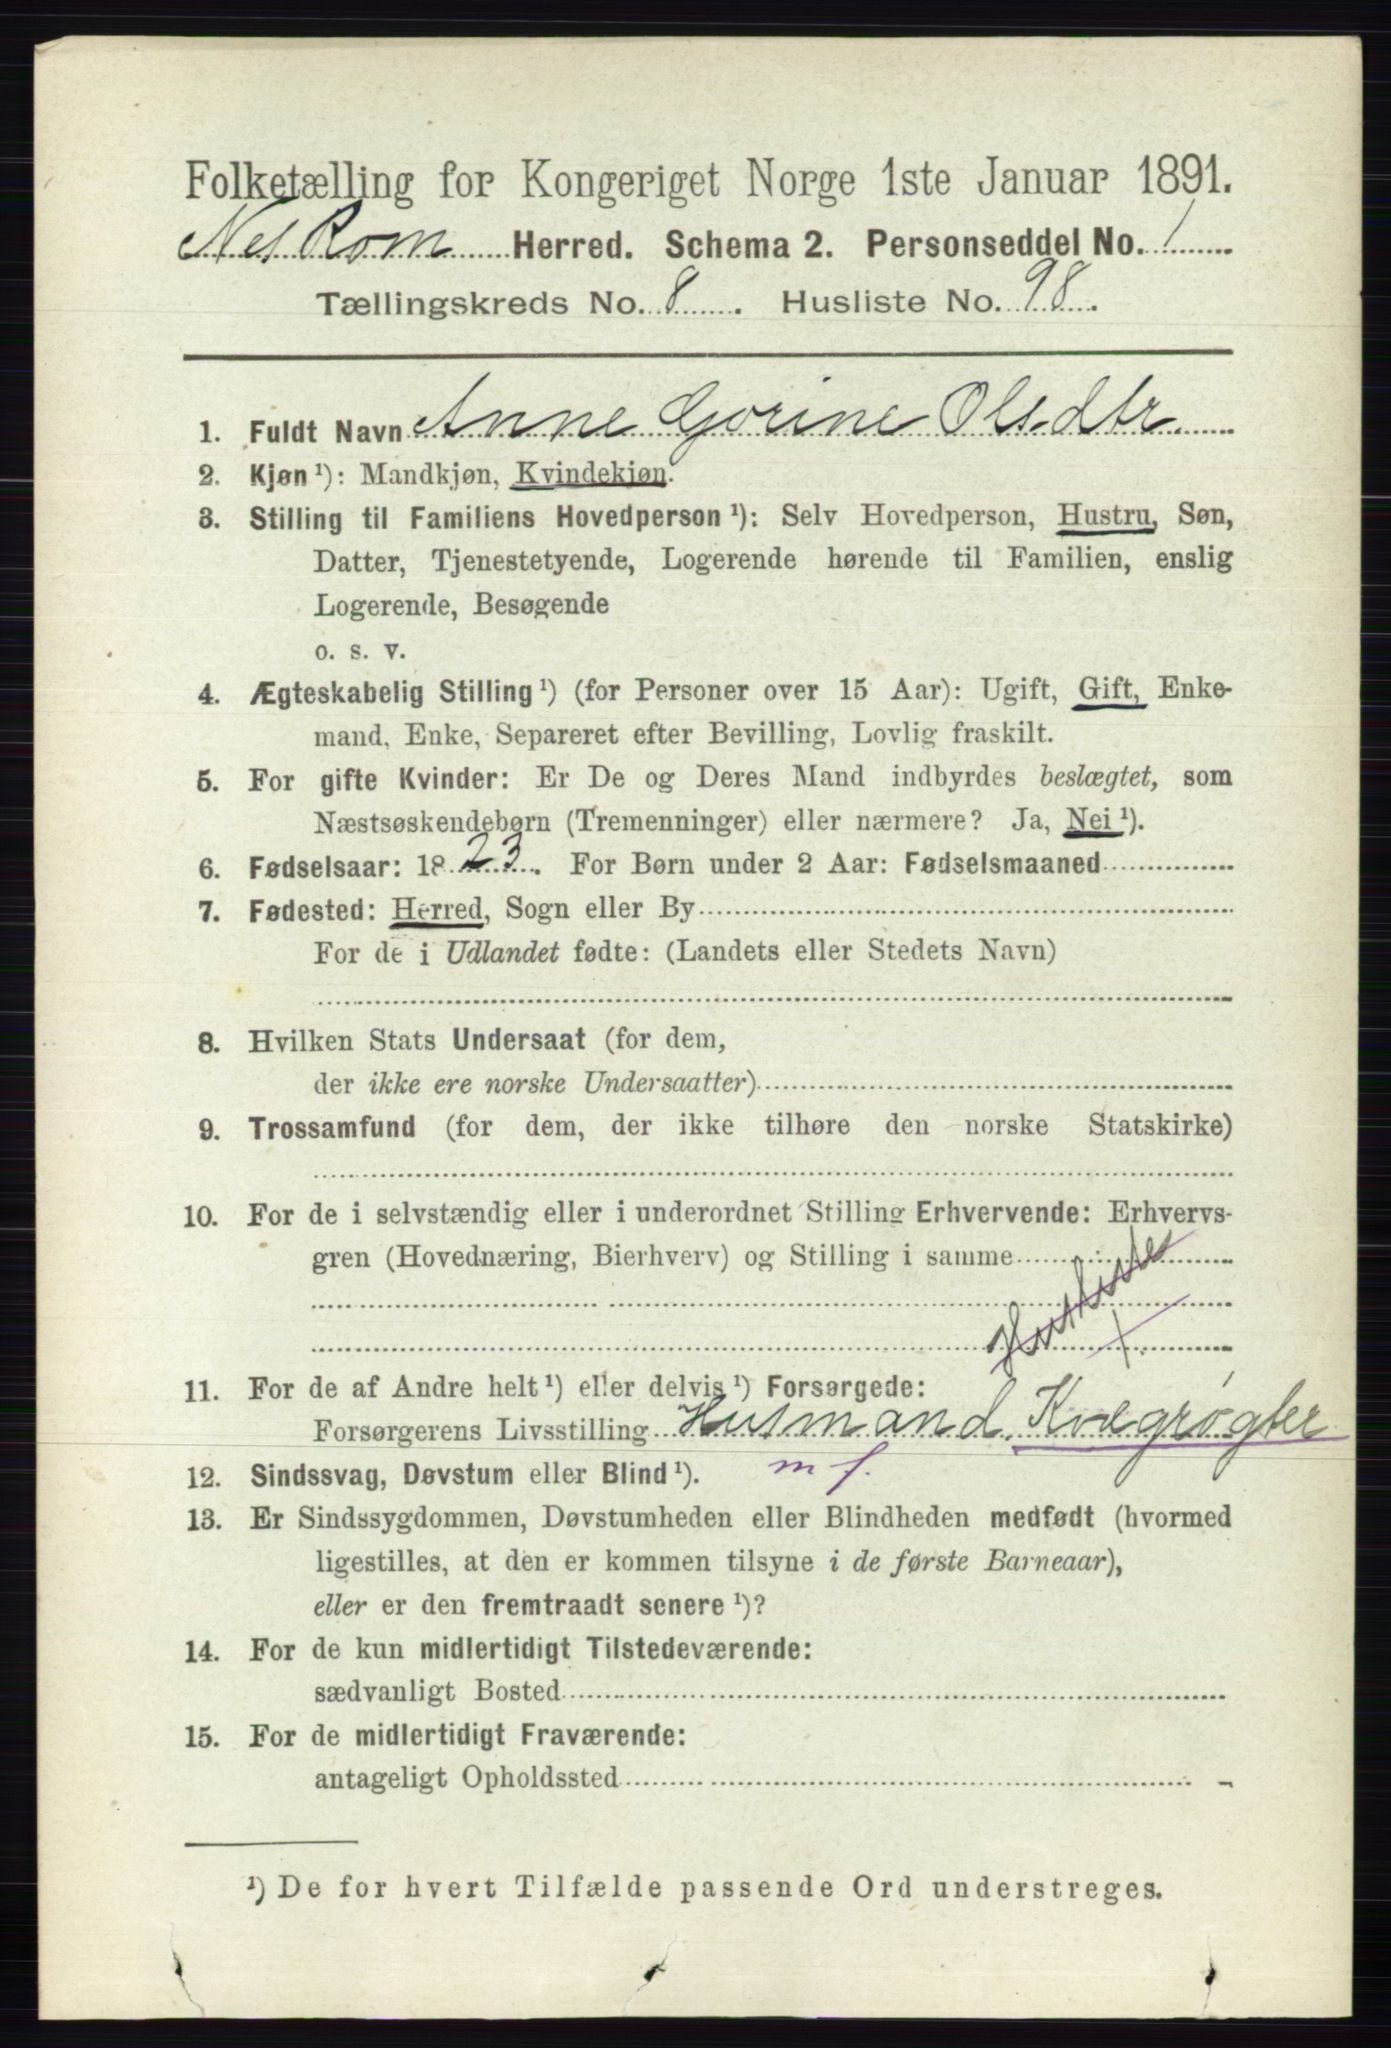 Folketælling for Kongeriget Norge 1ste Januar 1891.
Nes Rom Herred. Schema 2. Personseddel No. 1
Tællingskreds No. 8. Husliste No. 98.
1. Fuldt Navn Anne Gorine Olsdtr.
2. Kjøn ¹): Mandkjøn, Kvindekjøn.
3. Stilling til Familiens Hovedperson ¹): Selv Hovedperson, Hustru, Søn,
Datter, Tjenestetyende, Logerende hørende til Familien, enslig
Logerende, Besøgende
o. s. v.
4. Ægteskabelig Stilling ¹) (for Personer over 15 Aar): Ugift, Gift, Enke-
mand, Enke, Separeret efter Bevilling, Lovlig fraskilt.
5. For gifte Kvinder: Er De og Deres Mand indbyrdes beslægtet, som
Næstsøskendebørn (Tremenninger) eller nærmere? Ja, Nei ¹).
6. Fødselsaar: 1823. For Børn under 2 Aar: Fødselsmaaned
7. Fødested: Herred, Sogn eller By
For de i Udlandet fødte: (Landets eller Stedets Navn)
8. Hvilken Stats Undersaat (for dem,
der ikke ere norske Undersaatter)
9. Trossamfund (for dem, der ikke tilhøre den norske Statskirke)
10. For de i selvstændig eller i underordnet Stilling Erhvervende: Erhvervs-
gren (Hovednæring, Bierhverv) og Stilling i samme
11. For de af Andre helt ¹) eller delvis ¹) Forsørgede:
Forsørgerens Livsstilling Husmand, Kvægrøgter
12. Sindssvag, Døvstum eller Blind ¹). m f.
13. Er Sindssygdommen, Døvstumheden eller Blindheden medfødt (hvormed
ligestilles, at den er kommen tilsyne i de første Barneaar),
eller er den fremtraadt senere ¹)?
14. For de kun midlertidigt Tilstedeværende:
sædvanligt Bosted
15. For de midlertidigt Fraværende:
antageligt Opholdssted
¹) De for hvert Tilfælde passende Ord understreges.